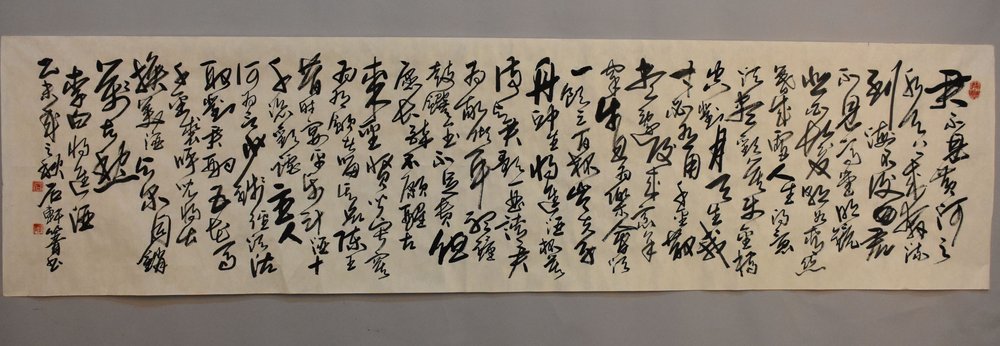 君不見黄河之
水天上来奔流
到海不復回君
不見高堂明鏡
悲白髮朝如青絲
暮成雪人生得意
須盡歡莫使金樽
空對月天生我
材必有用千金散
盡還復来烹羊
宰牛且為樂會須
一飲三百杯岑夫子
丹丘生将進酒杯莫
停与君歌一曲請君
为我側耳聴鐘
鼓饌玉不足貴但
愿長醉不願醒古
来聖賢皆寂寞
惟有飲者留其名陳王
昔時宴平樂斗酒十
千恣歡謔主人
何为言少錢徑須沽
取對君酌五花馬
千金裘呼児将出
換美酒与爾同銷
萬古愁
李白将進酒
乙未歲之秋石軒書